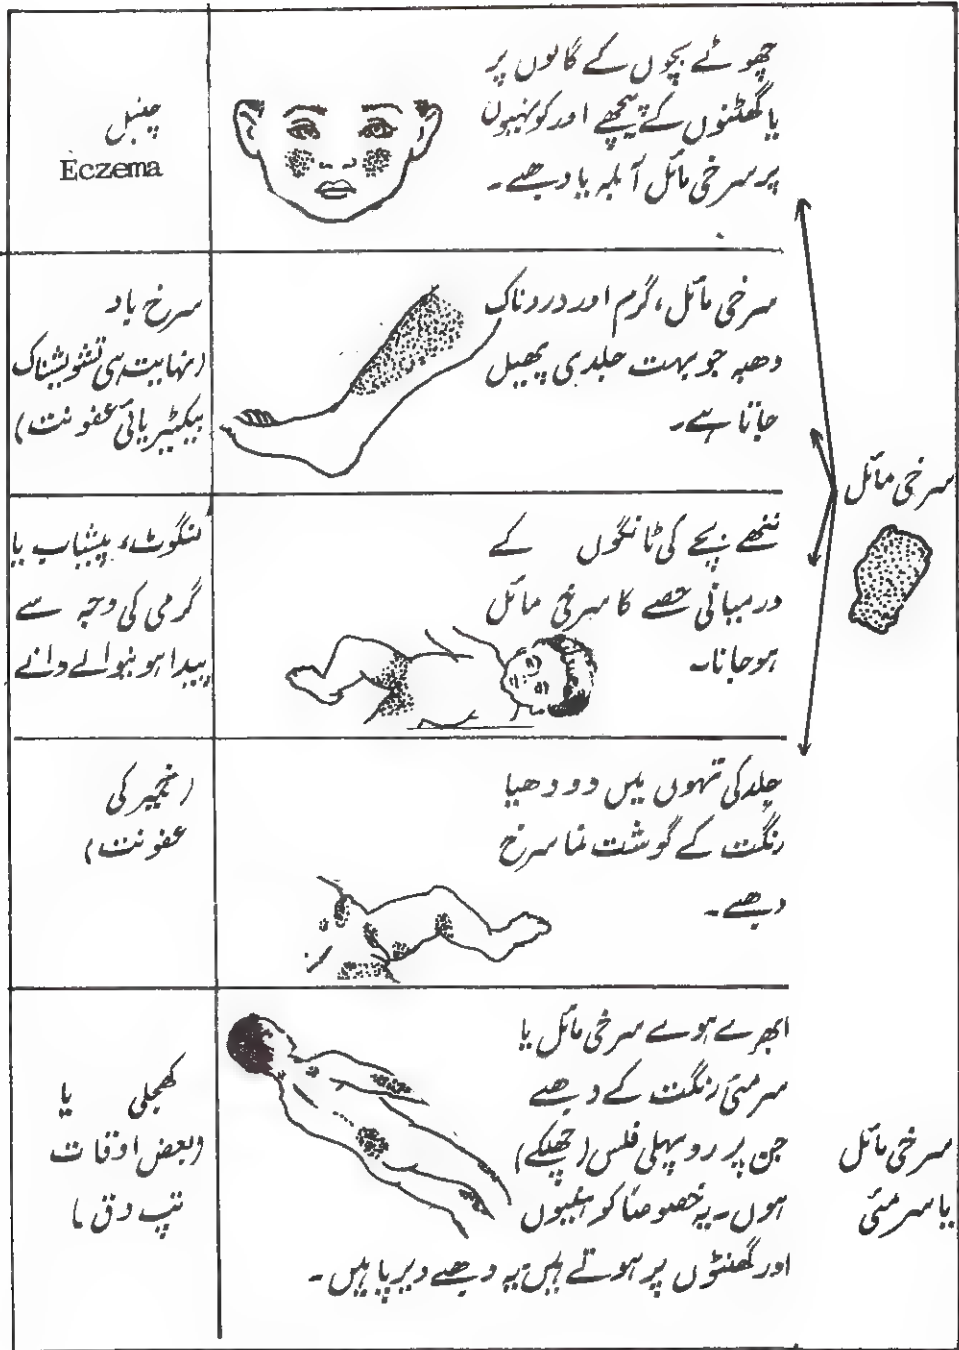 چھوٹے بچوں کے گالوں پر
یا گھٹنوں کے پیچھے اور کوہنیوں
پر سرخی مائل آبلہ یا دھبے۔
چنبل
Eczema
سرخی مائل، گرم اور دردناک
دھبہ جو بہت جلدی پھیل
جاتا ہے۔
سرخ باد
(نہایت ہی تشویشناک
بیکٹیریائی عفونت)
سرخی مائل
ننھے بچے کی ٹانگوں کے
درمیانی حصے کا سرخی مائل
ہو جانا۔
لنگوٹ، پیشاب یا
گرمی کی وجہ سے
پیدا ہونیوالے دانے
جلد کی تہوں میں دودھیا
رنگت کے گوشت نما سرخ
دھبے۔
(خمیر کی
عفونت)
سرخی مائل
یا سرمئی
ابھرے ہوے سرخی مائل یا
سرمئی رنگت کے دھبے
جن پر روپہلی فلس (چھلکے)
ہوں۔ یہ خصوصاً کوہنیوں
اور گھٹنوں پر ہوتے ہیں یہ دھبے دیرپا ہیں۔
کھجلی یا
(بعض اوقات
تپ دق)